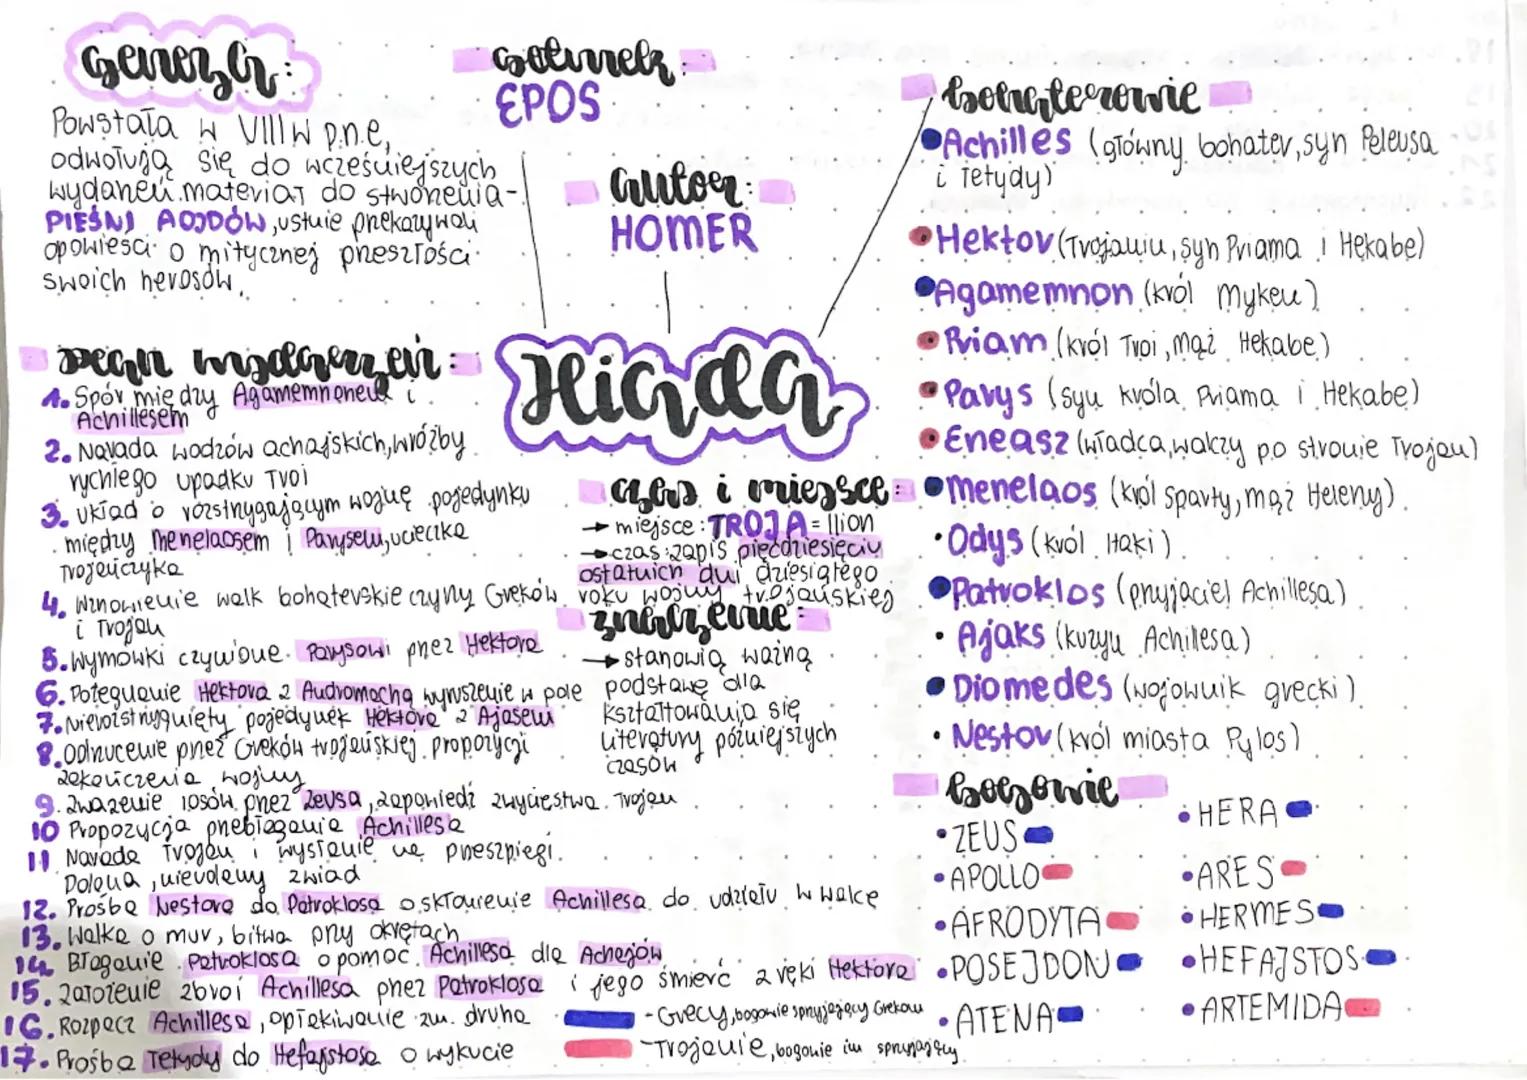 Geneza:
Powstała w VIII w p.n.e,
odwołują się do wcześniejszych
wydarzeń.materiał do stworzenia-
PIEŚNI AOJDÓW, ustnie przekazywali
opowieści o mitycznej przeszłości
swoich herosów.
Gatunek:
EPOS
autor:
HOMER
Iliada
bohaterowie
Achilles (główny bohater, syn Peleusa
i Tetydy)
Hektor (Trojanin, syn Priama i Hekabe)
Agamemnon (król Myken)
Priam (król Troi, mąż Hekabe)
Parys (syn króla Priama i Hekabe)
Eneasz (władca, walczy po stronie Trojan)
Menelaos (król Sparty, mąż Heleny)
Odys (król Itaki)
Patroklos (przyjaciel Achillesa)
Ajaks (kuzyn Achillesa)
Diomedes (wojownik grecki)
Nestor (król miasta Pylos)
plan wydarzeń:
1. Spór między Agamemnonem i
Achillesem
2. Narada wodzów achajskich, wróżby
rychłego upadku Troi
3. układ o rozstrzygającym wojnę pojedynku
między Menelaosem i Parysem, ucieczka
Trojańczyka
4. Wznowienie walk bohaterskie czyny Greków
i Trojan
5. Wymówki czynione Parysowi przez Hektora
6. Pożegnanie Hektora z Andromachą wyruszenie w pole
7. Nierozstrzygnięty pojedynek Hektora z Ajasem
8. Odrzucenie przez Greków trojańskiej propozycji
zakończenia wojny
9. Zważenie losów przez Zeusa, zapowiedź zwycięstwa Trojan
10 Propozycja przebłagania Achillesa
11 Narada Trojan i wysłanie na przeszpiegi
Dolona, nieudany zwiad
12. Prośba Nestora do Patroklosa o skłonienie Achillesa do udziału w walce
13. Walka o mur, bitwa przy okrętach
14. Błaganie Patroklosa o pomoc Achillesa dla Achajów
15. założenie zbroi Achillesa przez Patroklosa i jego śmierć z ręki Hektora
16. Rozpacz Achillesa, opłakiwanie zm. druha
17. Prośba Tetydy do Hefajstosa o wykucie
czas i miejsce:
→ miejsce: TROJA = Ilion
→ czas: zapis pięćdziesięciu
ostatnich dni dziesiątego
roku wojny trojańskiej
znaczenie:
→ stanowią ważną
podstawę dla
kształtowania się
literatury późniejszych
czasów
bogowie
ZEUS
APOLLO
AFRODYTA
POSEJDON
ATENA
HERA
ARES
HERMES
HEFAJSTOS
ARTEMIDA
- Grecy, bogowie sprzyjający Grekom
- Trojanie, bogowie im sprzyjający